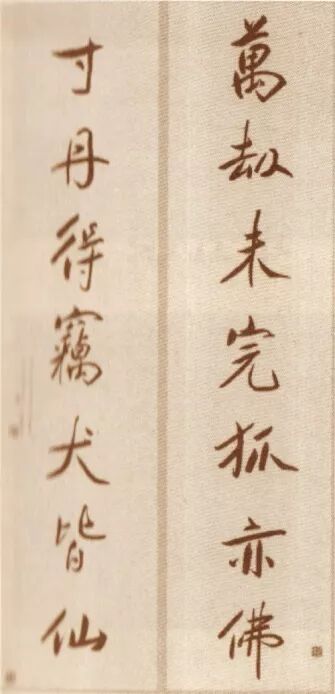 萬劫未完狐亦佛
寸丹得竊犬皆仙